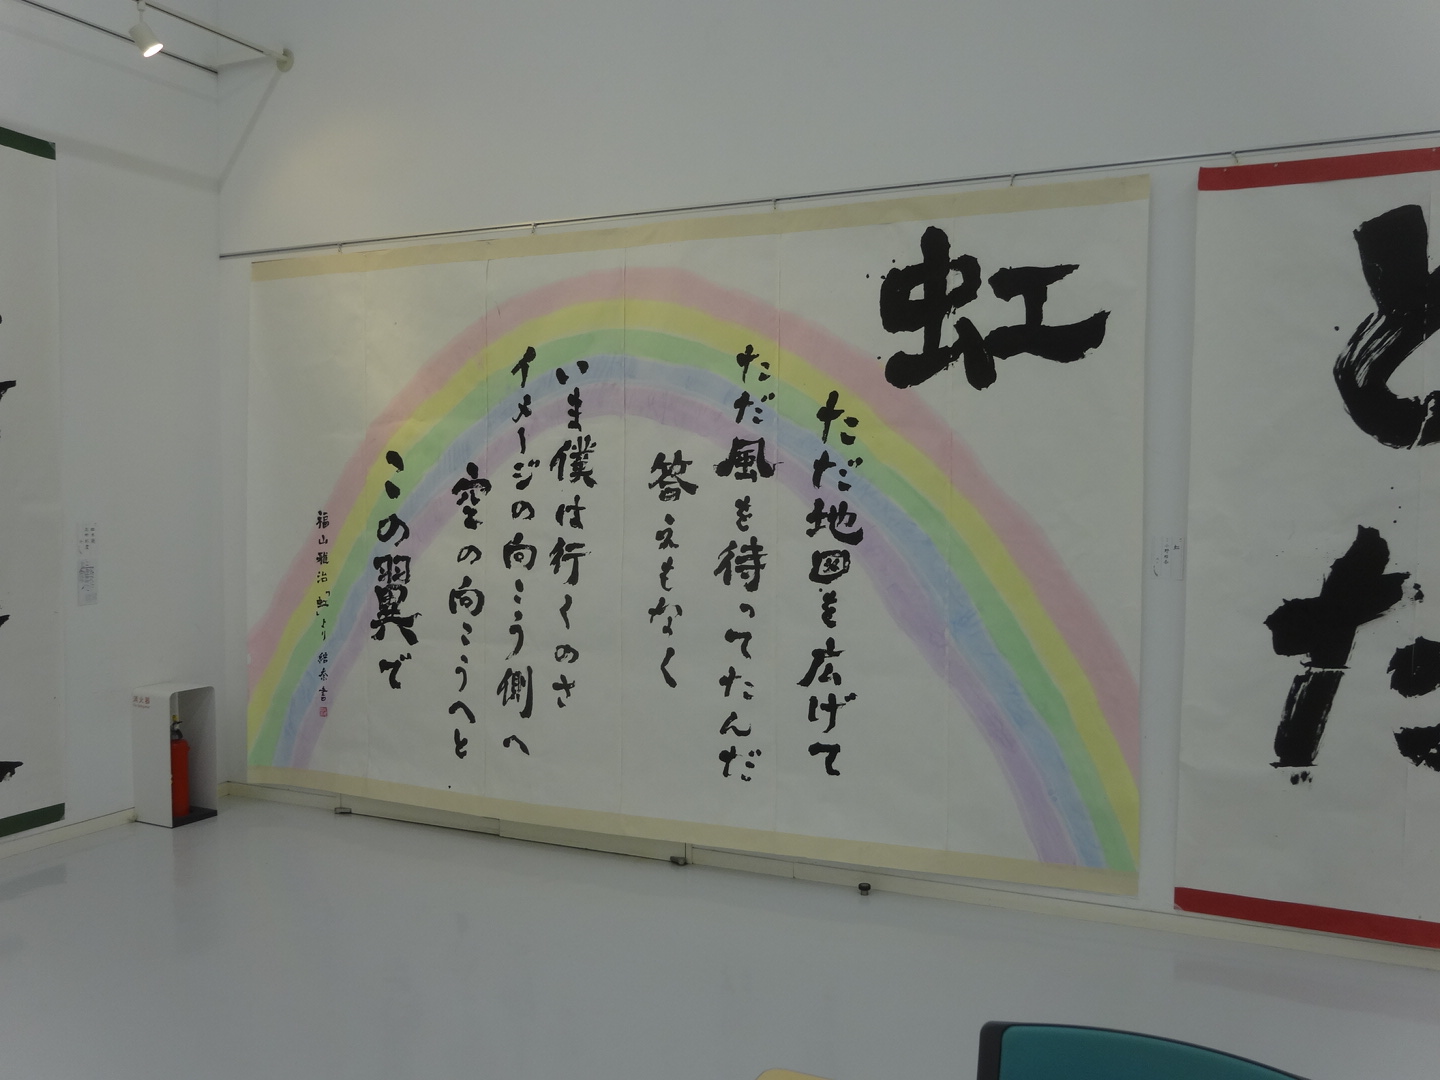 虹
ただ地図を広げて
ただ風を待ってたんだ
答えもなく
いま僕は行くのさ
イメージの向こう側へ
空の向こうへと
この翼で
福山雅治「虹」より 結奈書
とた
消火器